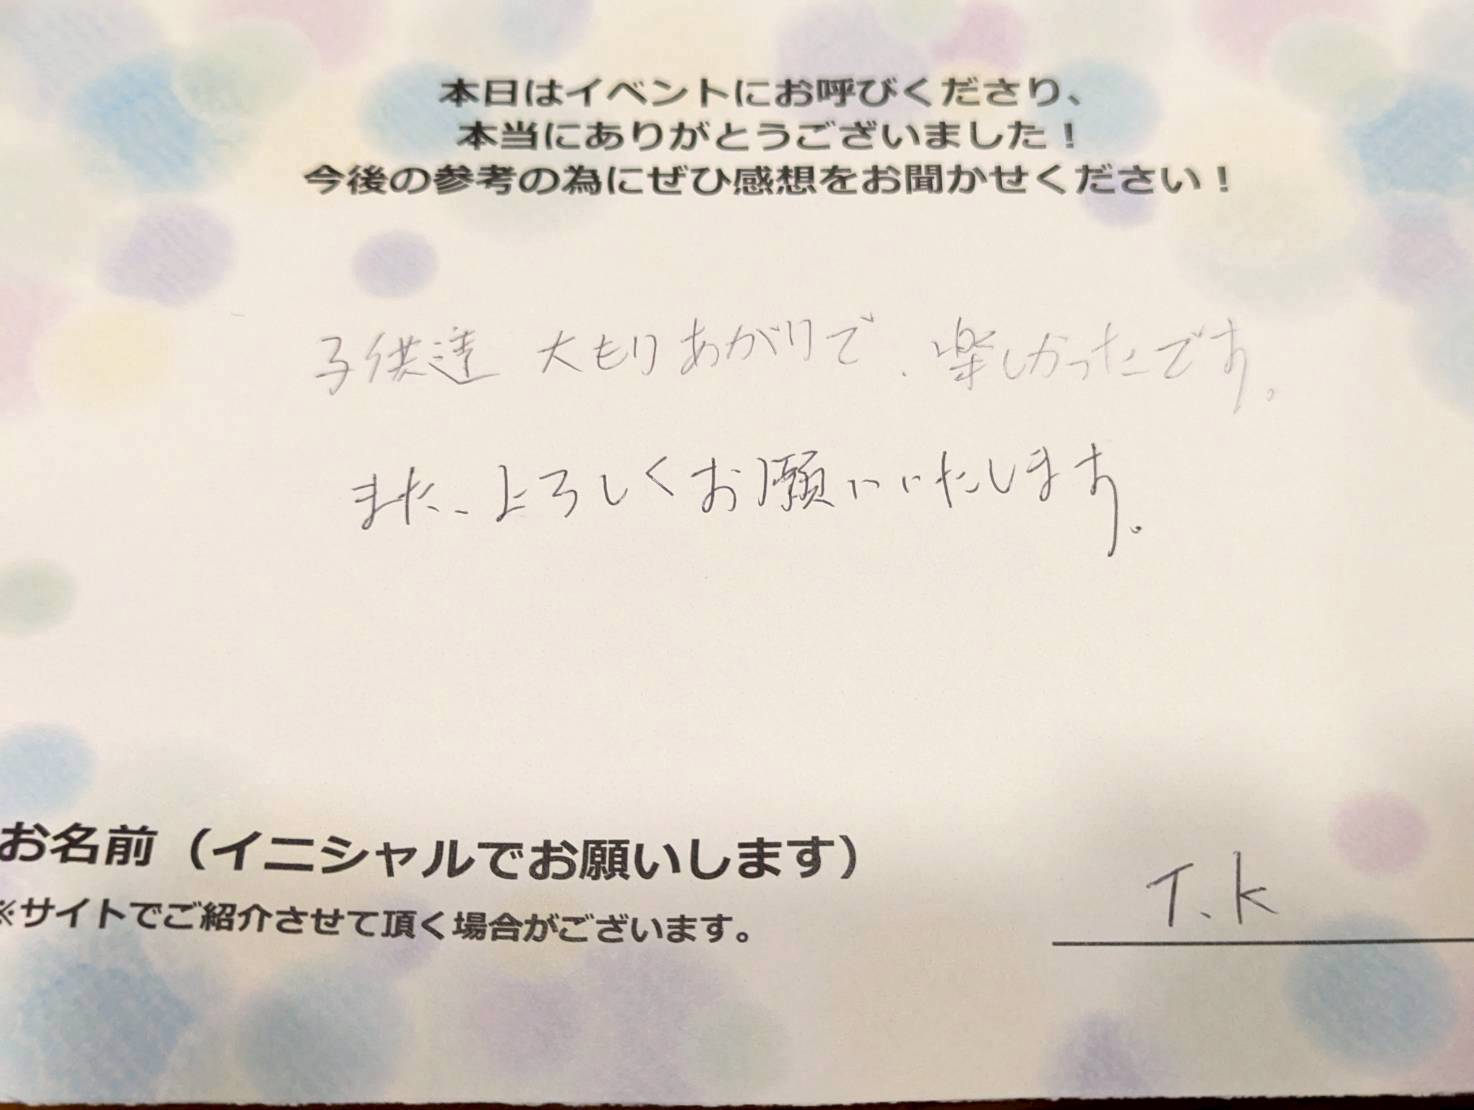 本日はイベントにお呼びくださり、
本当にありがとうございました！
今後の参考の為にぜひ感想をお聞かせください！
子供達 大もりあがりで、楽しかったです。
また、よろしくお願いいたします。
お名前（イニシャルでお願いします）
※サイトでご紹介させて頂く場合がございます。
T.K